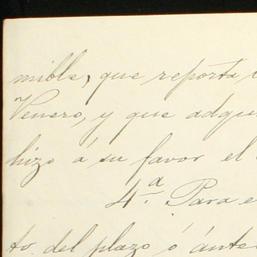 mible, que reporta
Venero, y que adqu
hizo á su favor el
4.ª Para e
to del plazo ó ánte